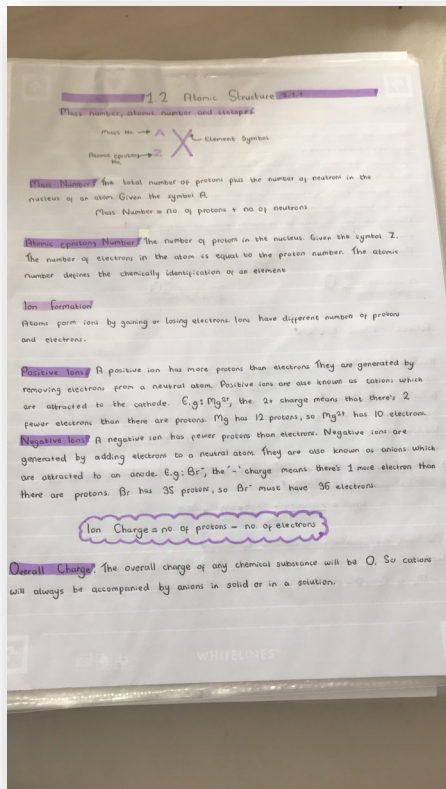 1.2 Atomic Structure 3.1.1
Mass number, atomic number and isotopes
Mass No. → A
X
Element Symbol
Atomic (proton) No. → Z
Mass Number: The total number of protons plus the number of neutrons in the
nucleus of an atom. Given the symbol A.
Mass Number = no. of protons + no. of neutrons
Atomic (proton) Number: The number of protons in the nucleus. Given the symbol Z.
The number of electrons in the atom is equal to the proton number. The atomic
number defines the chemically identification of an element
Ion formation
Atoms form ions by gaining or losing electrons. Ions have different number of protons
and electrons.
Positive Ions: A positive ion has more protons than electrons. They are generated by
removing electrons from a neutral atom. Positive ions are also known as cations which
are attracted to the cathode. E.g: Mg²⁺, the 2+ charge means that there's 2
fewer electrons than there are protons. Mg has 12 protons, so Mg²⁺ has 10 electrons.
Negative Ions: A negative ion has fewer protons than electrons. Negative ions are
generated by adding electrons to a neutral atom. They are also known as anions which
are attracted to an anode. E.g: Br⁻, the '-' charge means there's 1 more electron than
there are protons. Br has 35 protons, so Br⁻ must have 36 electrons.
Ion Charge = no. of protons - no. of electrons
Overall Charge: The overall charge of any chemical substance will be 0. So cations
will always be accompanied by anions in solid or in a solution.
WHITELINES